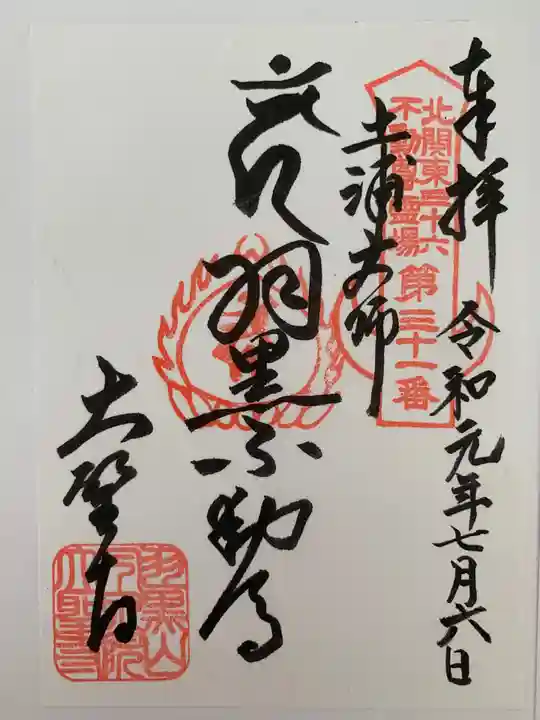 奉拝
令和元年七月六日
北関東三十六
不動尊霊場
第三十一番
土浦大師
羽黒不動尊
大聖寺
羽黒山
大聖寺